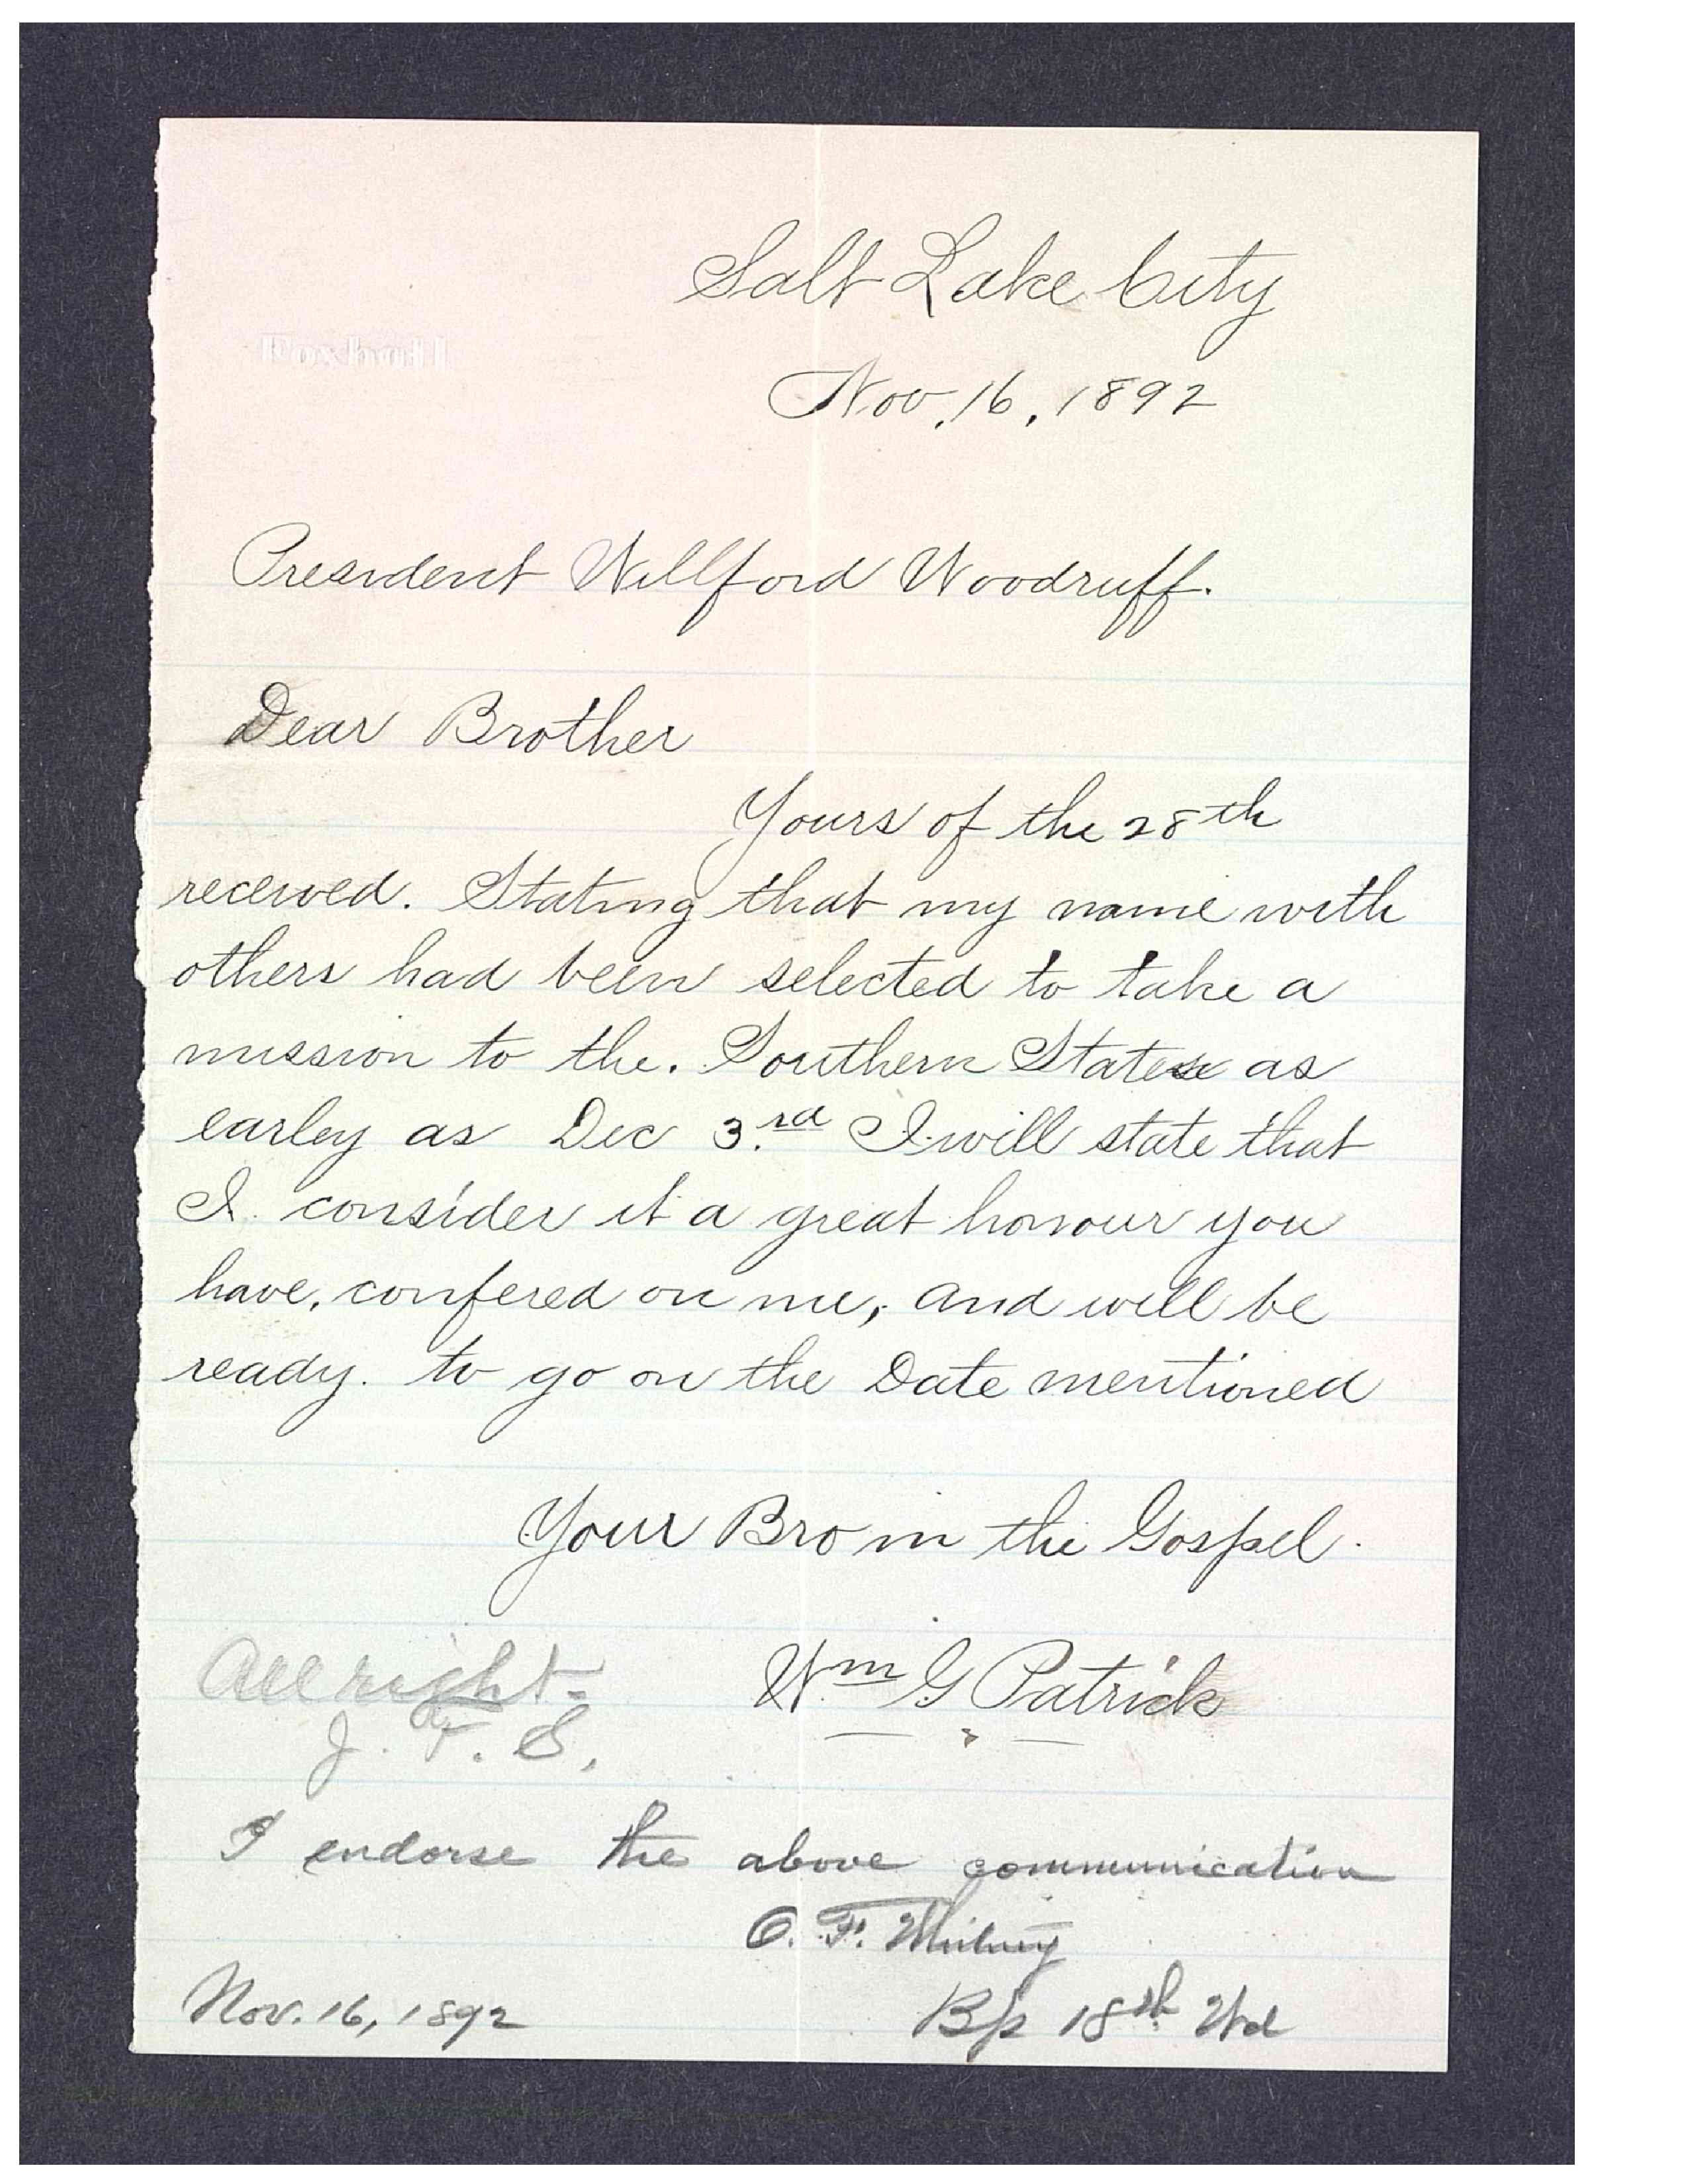 Foxhall
Salt Lake City
Nov, 16, 1892
President Willford Woodruff.
Dear Brother
Yours of the 28th
received. Stating that my name with
others had been selected to take a
mission to the. Southern States as
earley as Dec 3.rd I will state that
I. consider it a great honour you
have, confered on me, and will be
ready. to go on the Date mentioned
Your Bro in the Gospel.
Wm G Patrick
All right.
J. F. S.
I endorse the above communication
O. F. Whitney
Nov. 16, 1892 Bp 18th Wd